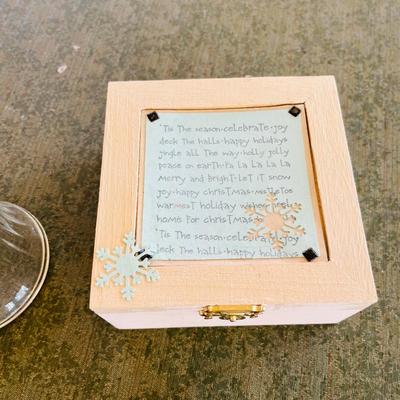 'Tis The season•celebrate•joy
deck The halls•happy holidays
jingle all The way•holly jolly
peace on earth•Fa La La La La
Merry and Bright•Let iT snow
joy•happy chrisTmas•misTleToe
warmesT holiday wishes
home For chrisTmas
'Tis The season•celebraTe•joy
deck The halls•happy holidays